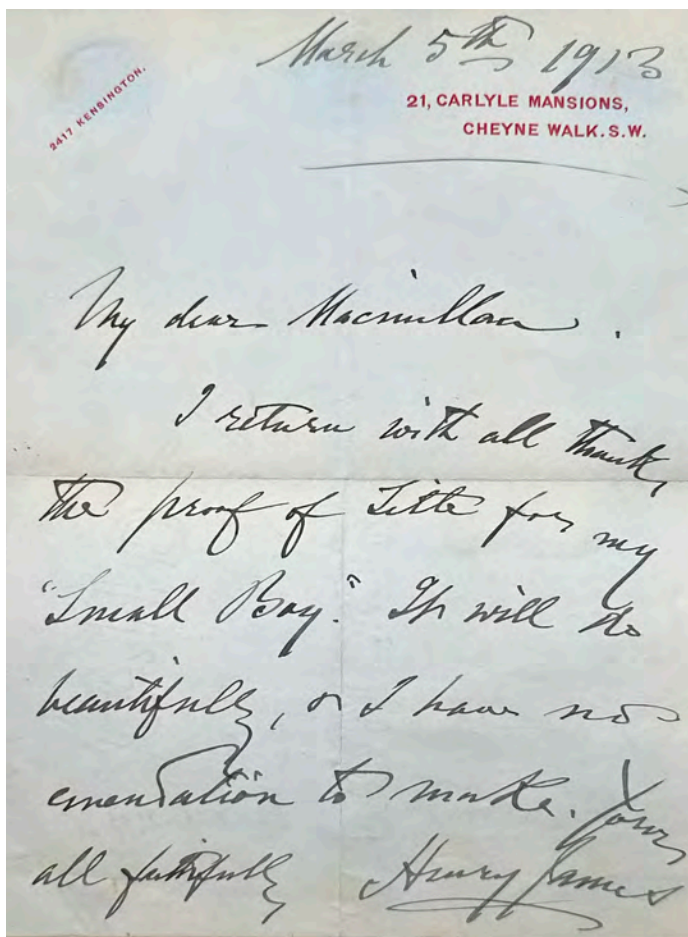 March 5th 1913
2417 KENSINGTON.
21, CARLYLE MANSIONS,
CHEYNE WALK. S.W.
My dear Macmillan.
I return with all thanks
the proof of Title for my
"Small Boy." It will do
beautifully, & I have no
emendation to make. Yours
all faithfully Henry James